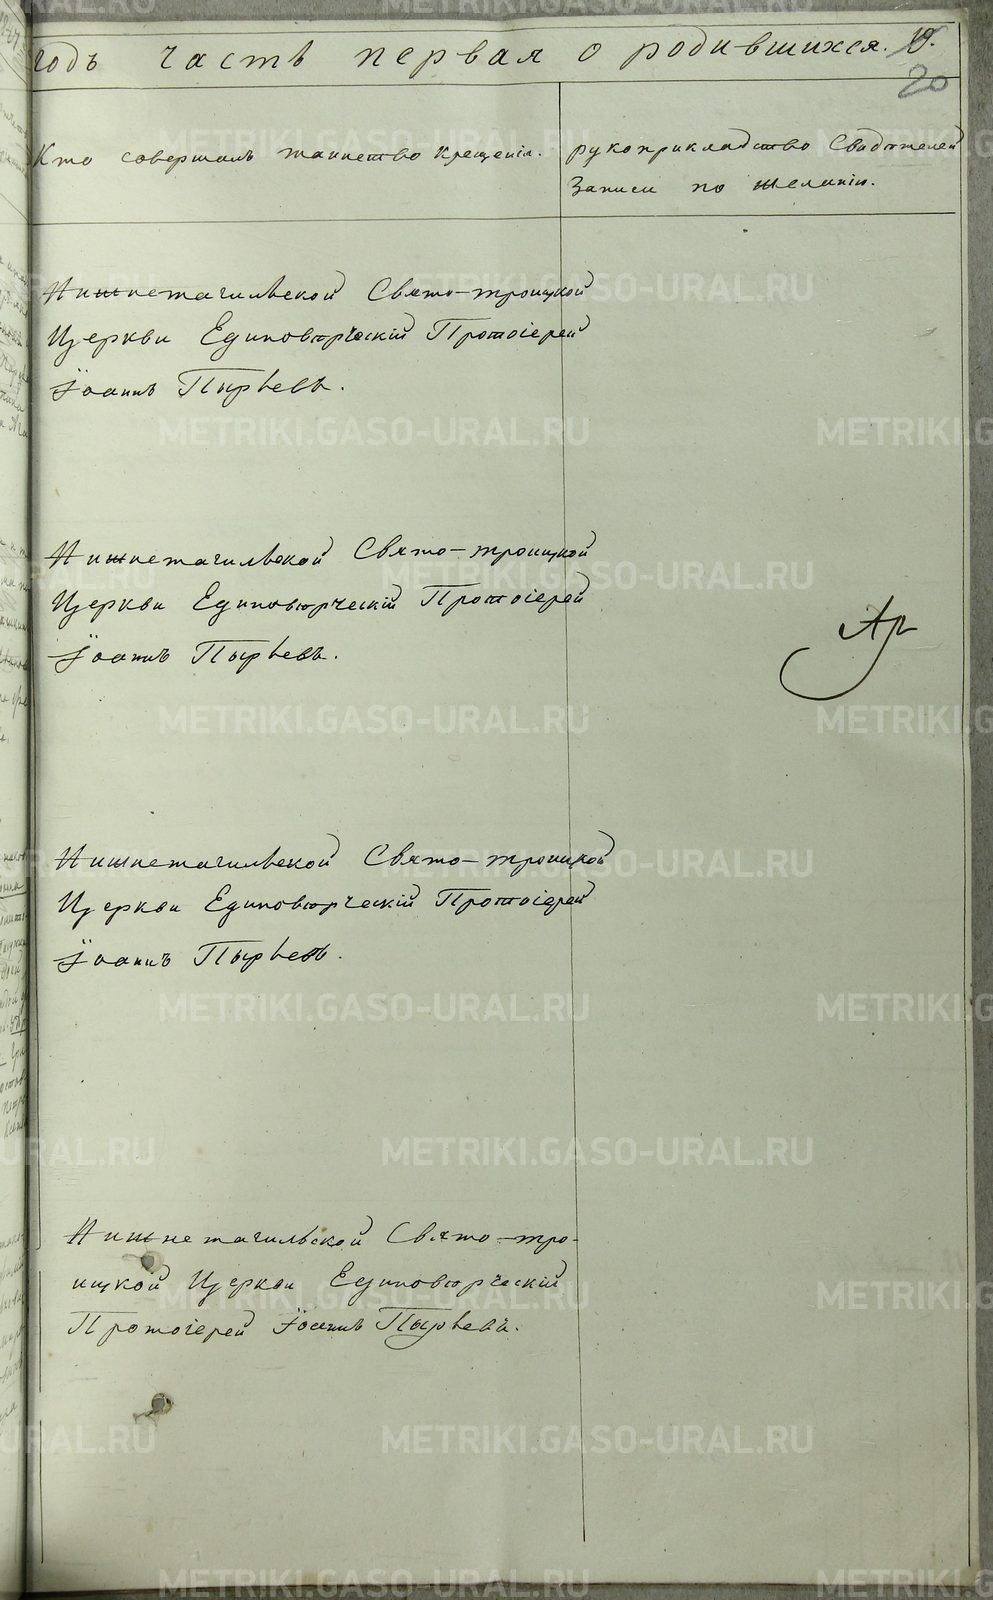 годъ часть первая о родившихся. 19.
20
Кто совершалъ таинство крещенія.
рукоприкладство Свидѣтелей
Записи по желанію.
Нижнетагильской Свято-троицкой
Церкви Единовѣрческій Протоіерей
Іоаннъ Пырьевъ.
Нижнетагильской Свято-троицкой
Церкви Единовѣрческій Протоіерей
Іоаннъ Пырьевъ.
Нижнетагильской Свято-троицкой
Церкви Единовѣрческій Протоіерей
Іоаннъ Пырьевъ.
Нижнетагильской Свято-тро-
ицкой Церкви Единовѣрческій
Протоіерей Іоаннъ Пырьевъ.
METRIKI.GASO-URAL.RU